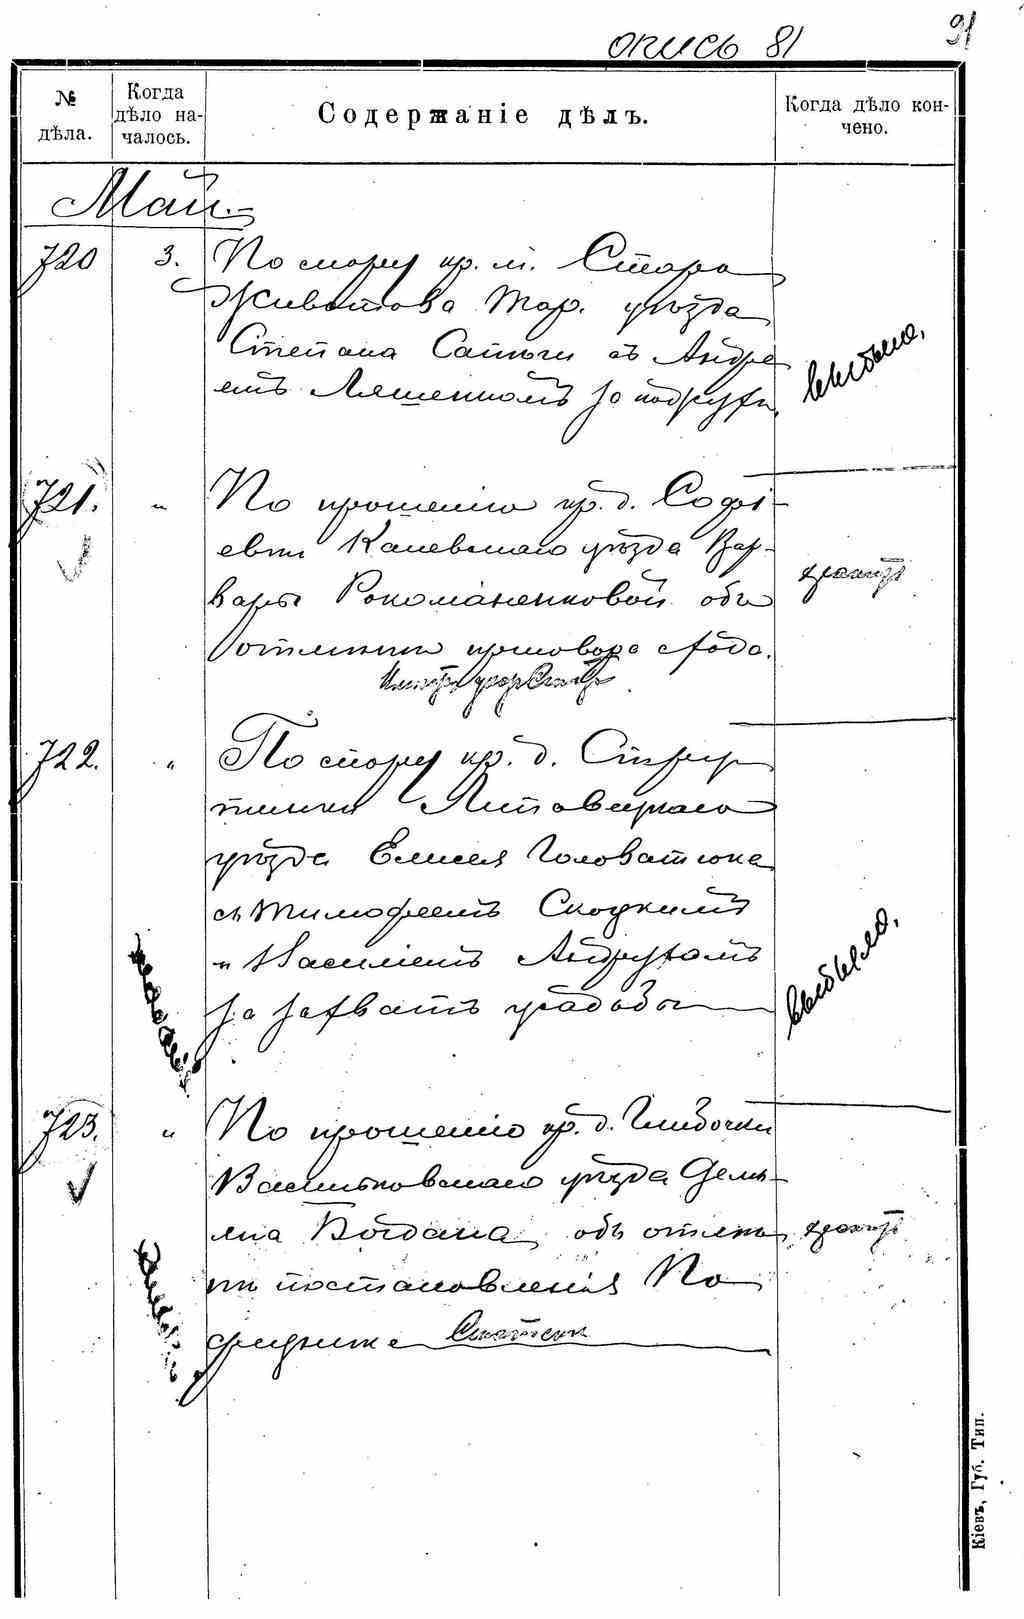 опись 81
91
№ дѣла.
Когда дѣло началось.
Содержаніе дѣлъ.
Когда дѣло кончено.
Май.
720 3. По спору кр. м. Старо
Животова Тар. уѣзда
Степана Сатыги съ Андре
емъ Ляшенкомъ за
выбыло.
721. " По прошенію кр. д. Софі-
евки Каневскаго уѣзда Вар-
вары Рокоманенковой объ
отмѣны приговора схода.
722. " По спору кр. д.
Липовецкаго
уѣзда Елисея Головатюка
съ Тимофеемъ Скоцкимъ
и Василіемъ Андрухомъ
за захватъ усадьбы
выбыло.
723. " По прошенію кр. д. Глибочки
Васильковскаго уѣзда Демь-
яна Богдана, объ отмѣ
ны постановленія По
средника
Кіевъ, Губ. Тип.